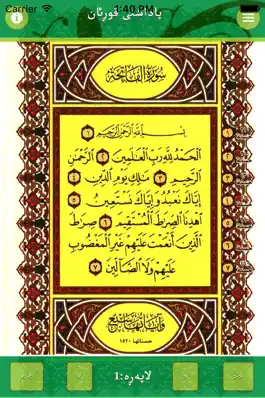 Carrier 1:40 PM
پاداشتی قورئان
سُورَةُ الْفَاتِحَةِ
بِسْمِ اللَّهِ الرَّحْمَنِ الرَّحِيمِ ١
الْحَمْدُ لِلَّهِ رَبِّ الْعَالَمِينَ ٢ الرَّحْمَنِ
الرَّحِيمِ ٣ مَالِكِ يَوْمِ الدِّينِ ٤
إِيَّاكَ نَعْبُدُ وَإِيَّاكَ نَسْتَعِينُ ٥
اهْدِنَا الصِّرَاطَ الْمُسْتَقِيمَ ٦ صِرَاطَ
الَّذِينَ أَنْعَمْتَ عَلَيْهِمْ غَيْرِ الْمَغْضُوبِ
عَلَيْهِمْ وَلَا الضَّالِّينَ ٧
وَآيَاتُهَا سَبْعٌ
حسناتها ١٥٢٠
لاپەرە:1